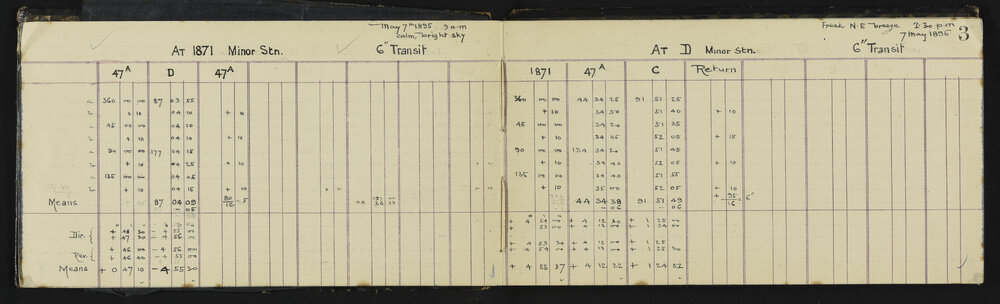 May 7th 1895 9 a.m
calm, bright sky
At 1871 Minor Stn. 6" Transit
47A D 47A
360 00 00 87 03 55
+ 10 04 10 + 10
45 00 00 04 10
+ 10 04 10 + 10
90 00 00 177 04 15
+ 10 04 25 + 10
135 00 00 04 05
+ 10 04 15 + 10
Means 87 04 09
Dir. + 48 30
+ 47 30 - 4 56
Rev. + 46 00 - 4 56 00
+ 46 40 - 4 55 00
Means + 0 47 10 - 4 55 30
Fresh N.E breeze 2.30 p.m
7 May 1895
3
At D Minor Stn. 6" Transit
1871 47A C Return
360 00 00 44 34 25 91 51 25
+ 10 34 50 51 40 + 10
45 00 00 34 20 51 35
+ 10 34 45 52 05 + 15
90 00 00 134 34 20 51 45
+ 10 34 40 52 05 + 10
135 00 00 34 40 51 55
+ 10 35 00 52 05 + 10
44 34 38 91 51 49
- 06 - 06
+ 4 53 30 + 4 12 30 + 1 25
+ 4 53 37 + 4 12 22 + 1 24 52